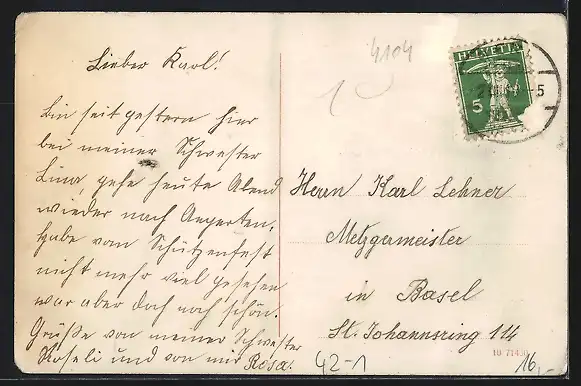 4104
HELVETIA
5
5
Lieber Karl!
Bin seit gestern hier
bei meiner Schwester
Lina, gehe heute Abend
wieder nach Aegerten,
habe vom Schützenfest
nicht mehr viel gesehen
war aber doch noch schön.
Grüße von meiner Schwester
Roseli und von mir Rosa.
Herrn Karl Lehner
Metzgermeister
in Basel
St. Johannsring 114
42-1
16,-